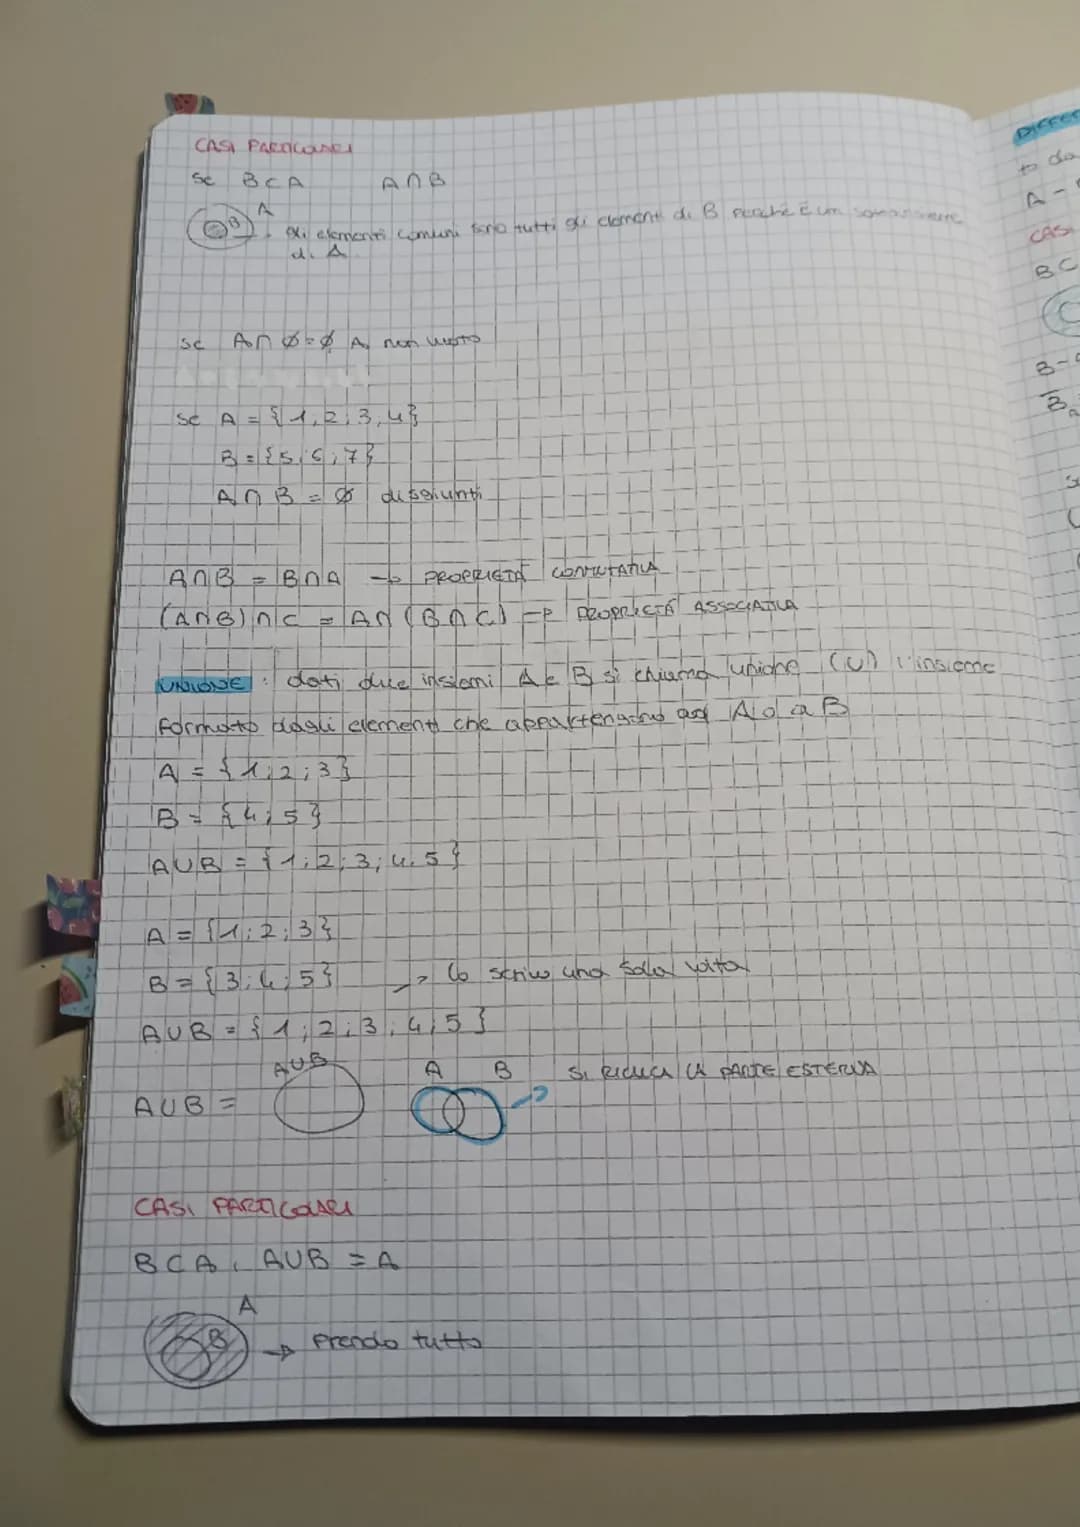 CASI PARTICOLARI
Se B⊂A A∩B
A
B
gli elementi comuni sono tutti gli elementi di B perché È un sottoinsieme
di A
se A∩∅=∅ A non vuoto
se A = {1,2;3,4}
B = {5;6;7}
A∩B = ∅ disgiunti
A∩B = B∩A → PROPRIETÀ COMMUTATIVA
(A∩B)∩C = A∩(B∩C) → PROPRIETÀ ASSOCIATIVA
UNIONE: dati due insiemi A e B si chiama unione (∪) l'insieme
formato dagli elementi che appartengono ad A o a B
A = {1;2;3}
B = {4;5}
A∪B = {1;2;3;4;5}
A = {1;2;3}
B = {3;4;5} → lo scrivo una sola volta
A∪B = {1;2;3;4;5}
A∪B A B Si RICALCA LA PARTE ESTERNA
A∪B =
CASI PARTICOLARI
B⊂A, A∪B = A
A
B → Prendo tutto
DIFFE
to da
A -
CASI
B⊂
B -